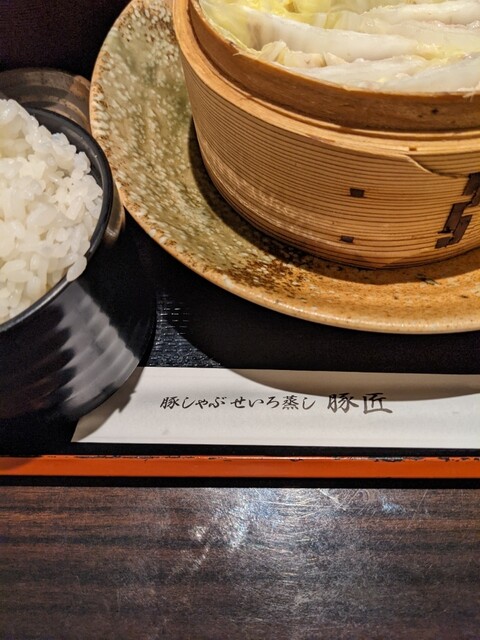 豚しゃぶせいろ蒸し 豚匠